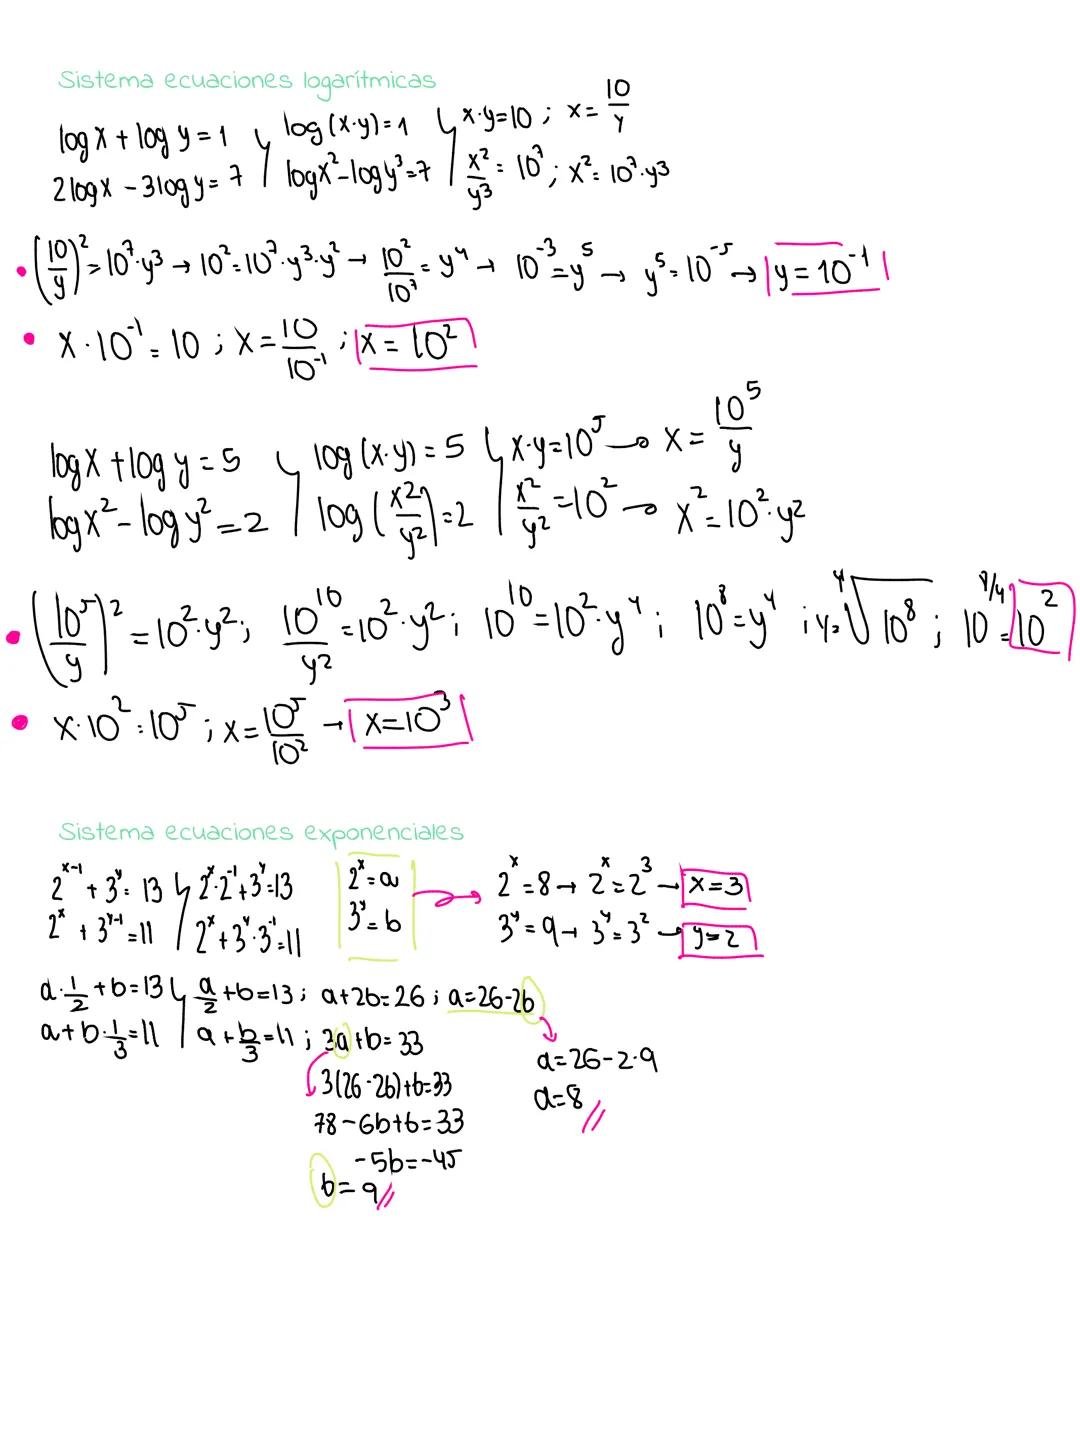 Sistema ecuaciones logarítmicas
log x + log y = 1 } log (x·y) = 1 } x·y = 10 ; x = 10/y
2 log x - 3 log y = 7 } log x² - log y³ = 7 } x²/y³ = 10⁷ ; x² = 10⁷·y³
• (10/y)² = 10⁷·y³ → 10² = 10⁷·y³·y² → 10²/10⁷ = y⁴ → 10⁻³ = y⁵ → y⁵ = 10⁻⁵ → y = 10⁻¹
• x·10⁻¹ = 10 ; x = 10/10⁻¹ ; x = 10²
log x + log y = 5 } log (x·y) = 5 } x·y = 10⁵ → x = 10⁵/y
log x² - log y² = 2 } log (x²/y²) = 2 } x²/y² = 10² → x² = 10²·y²
• (10⁵/y)² = 10²·y² ; 10¹⁰/y² = 10²·y² ; 10¹⁰ = 10²·y⁴ ; 10⁸ = y⁴ ; y = ⁴√10⁸ ; 10^(8/4) = 10²
• x·10² = 10⁵ ; x = 10⁵/10² → x = 10³
Sistema ecuaciones exponenciales
2ˣ⁻¹ + 3ʸ = 13 } 2ˣ·2⁻¹ + 3ʸ = 13 2ˣ = a → 2ˣ = 8 → 2ˣ = 2³ → x = 3
2ˣ + 3ʸ⁻¹ = 11 } 2ˣ + 3ʸ·3⁻¹ = 11 3ʸ = b 3ʸ = 9 → 3ʸ = 3² → y = 2
a·1/2 + b = 13 } a/2 + b = 13 ; a + 2b = 26 ; a = 26 - 2b
a + b·1/3 = 11 } a + b/3 = 11 ; 3a + b = 33
a = 26 - 2·9
3(26 - 2b) + b = 33
a = 8 //
78 - 6b + b = 33
-5b = -45
b = 9 //